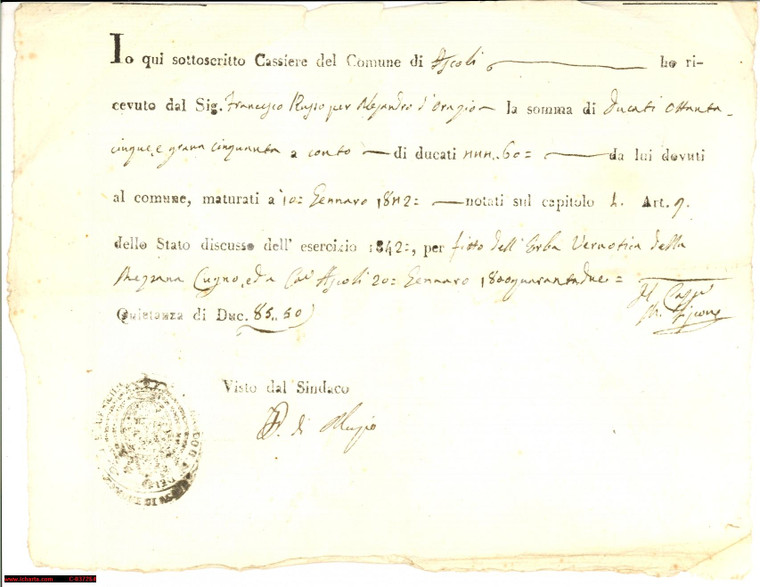 Io qui sottoscritto Cassiere del Comune di Ascoli ho ri-
cevuto dal Sig. Francesco Russo per Alejandro d'Orazio la somma di Ducati Ottanta-
cinque, e grana cinquanta a conto di ducati di lui dovuti
al comune, maturati a 10: Gennaro 1842: notati sul capitolo Art. 9
dello Stato discusso dell' esercizio 1842:, per fitto dell' Erba Vernotica della
Mezzana Cugno, ed a Ascoli 20: Gennaro 1800quarantadue =
Quietanza di Duc. 85..50
Il Cass.
Visto dal Sindaco
di Muzio
www.icharta.com C-837284